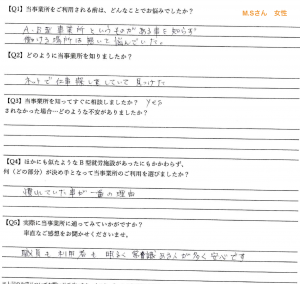 【Q1】当事業所をご利用される前は、どんなことでお悩みでしたか？
M.Sさん　女性
A、B型 事業所というものがある事を知らず
働ける場所は無いと悩んでいた。
【Q2】どのように当事業所を知りましたか？
ネットで仕事探しをしていて見つけた
【Q3】当事業所を知ってすぐに相談しましたか？ Yes
されなかった場合…どのような不安がありましたか？
【Q4】ほかにも似たようなB型就労施設があったにもかかわらず、
何（どの部分）が決め手となって当事業所のご利用を選びましたか？
していた事が一番の理由
【Q5】実際に当事業所に通ってみていかがですか？
率直なご感想をお聞かせくださいませ。
職員も利用者も明るく常識あさんが多く安心です